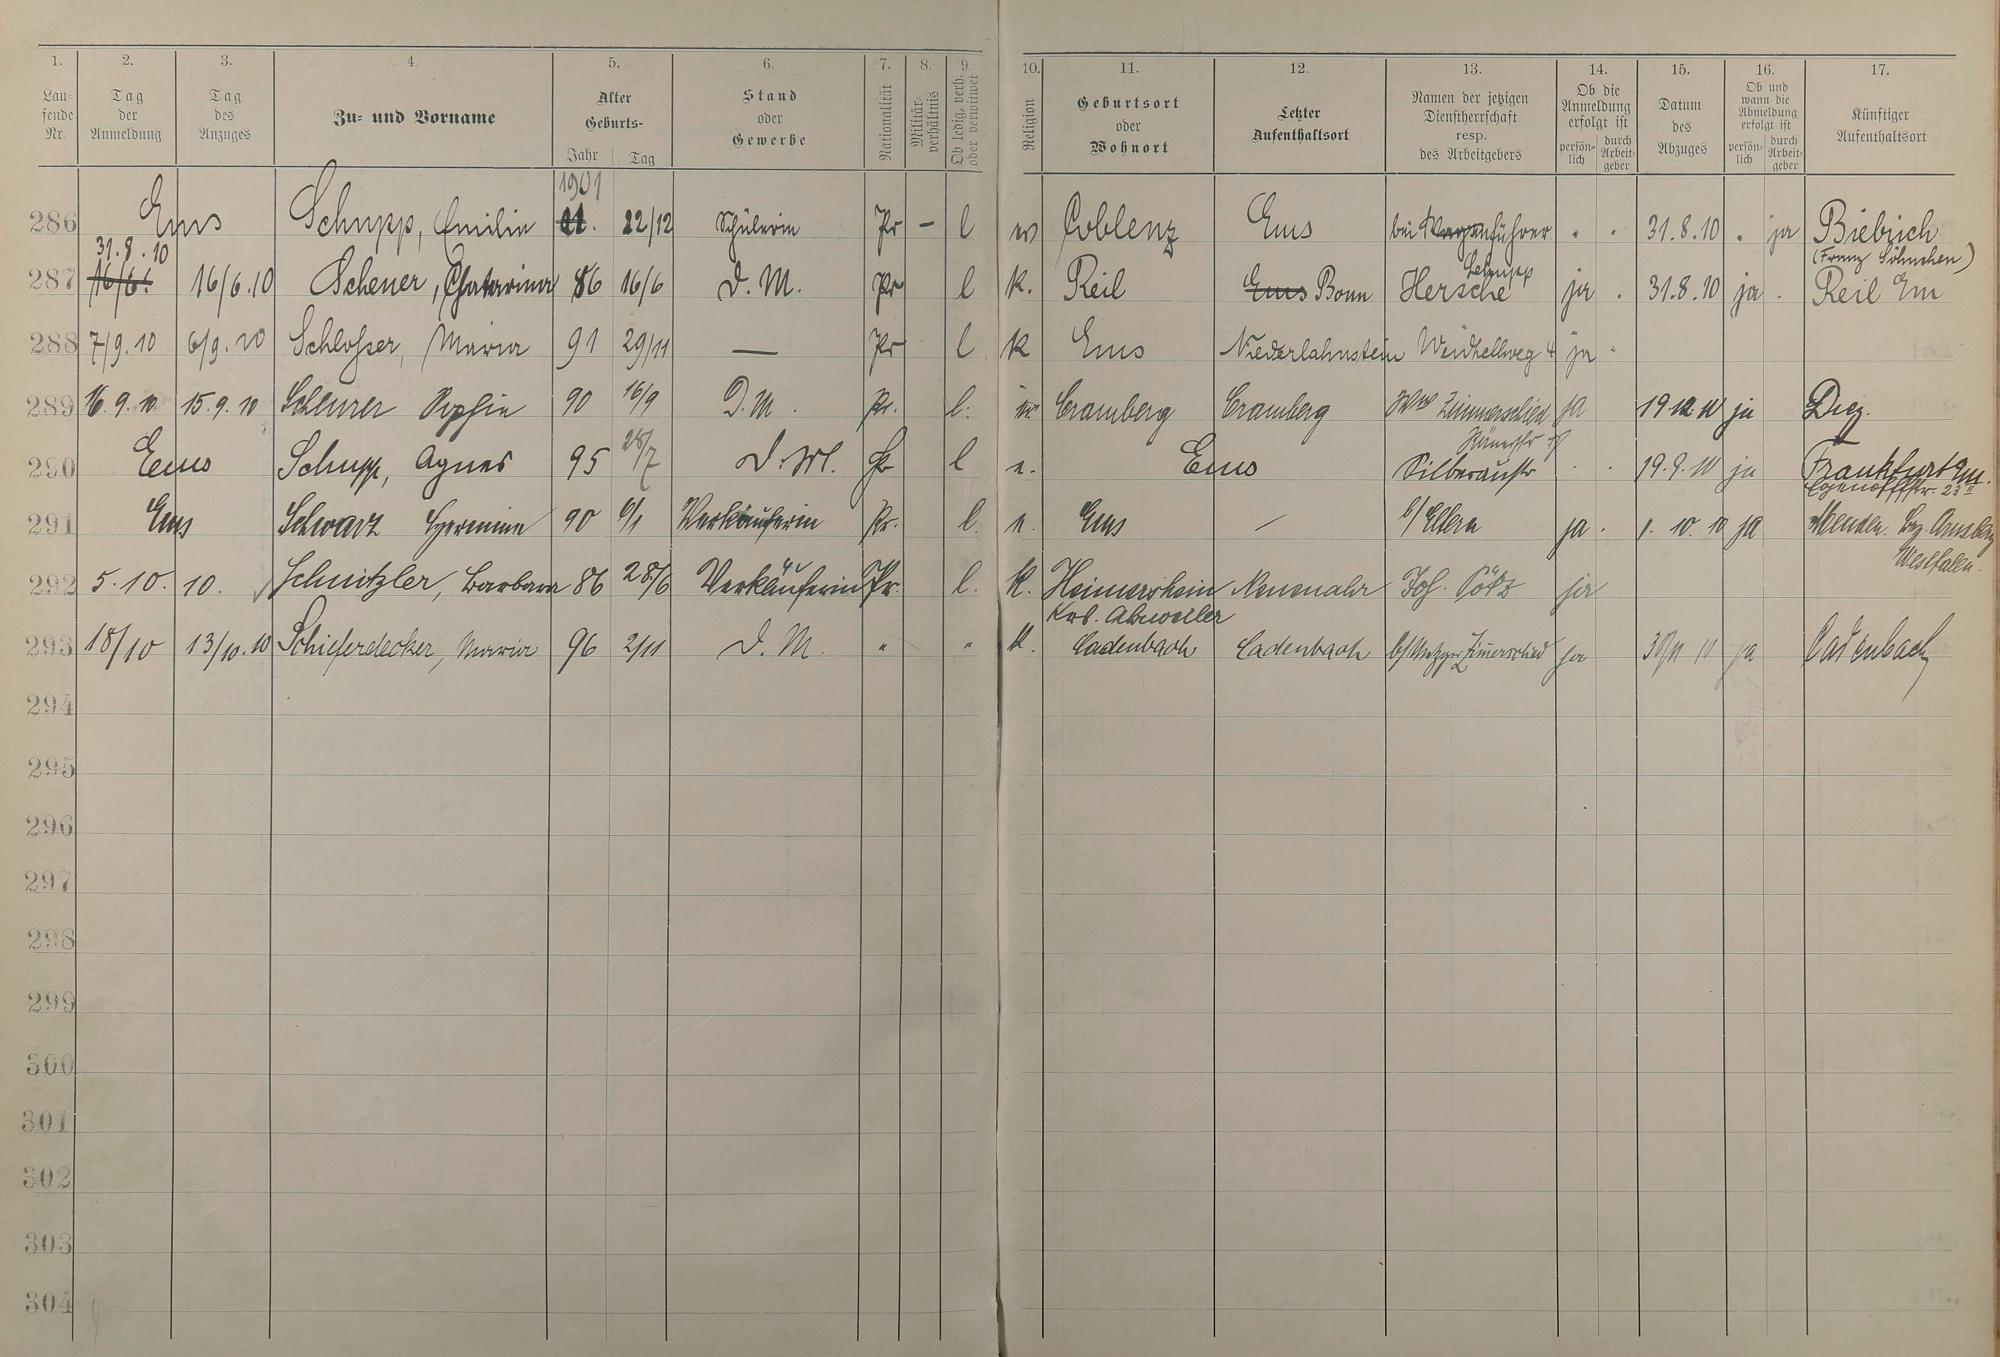 1. 2. 3. 4. 5. 6. 7. 8. 9. 10. 11. 12. 13. 14. 15. 16. 17.
Lau-
fende
Nr.
Tag
der
Anmeldung
Tag
des
Anzuges
Zu- und Vorname
Alter
Geburts-
Jahr Tag
Stand
oder
Gewerbe
Nationalität
Militär-
verhältnis
Ob ledig, verh.
oder verwitwet
Religion
Geburtsort
oder
Wohnort
Letzter
Aufenthaltsort
Namen der jetzigen
Dienstherrschaft
resp.
des Arbeitgebers
Ob die
Anmeldung
erfolgt ist
persön-
lich
durch
Arbeit-
geber
Datum
des
Abzuges
Ob und
wann die
Abmeldung
erfolgt ist
persön-
lich
durch
Arbeit-
geber
Künftiger
Aufenthaltsort
1901
286 Ems Schupp, Emilie 22/12 Schülerin Pr – l ev Coblenz Ems bei Wagenführer . . 31.8.10 . ja Biebrich
Schupp (Franz Söhnchen)
31.8.10
287 16/6. 16/6.10 Scheuer, Chatarina 86 16/6 D. M. Pr l k. Reil Ems Bonn Hersche ja . 31.8.10 ja . Reil
288 7/9.10 6/9.10 Schlosser, Maria 91 29/11 — Pr l k Ems Niederlahnstein Weidhellweg 4 ja .
289 16.9.10 15.9.10 Scheurer Sophie 90 16/9 D.M. Pr. l. Cramberg Cramberg Ww Zimmerschied ja 19 10 ja Diez.
290 Ems Schupp, Agnes 95 28/7 D. M. Pr l e. Ems Römerstr
Silberaustr . . 19.9.10 ja Frankfurt a/m.
Egenolffstr. 23 II
291 Ems Schwarz Hermine 90 6/1 Verkäuferin Pr. l. e. Ems – b/ Eltern ja . 1. 10. 10 ja Menden. Bez. Arnsberg
Westfalen.
292 5.10. 10. Schnitzler, Barbara 86 28/6 Verkäuferin Pr. l. k. Heimersheim Neuenahr Jos. Götz ja
Krs. Ahrweiler
293 18/10 13/10.10 Schieferdecker, Maria 96 2/11 D. M. " " k. Cadenbach Cadenbach b/ Metzger Zimerschied ja 30/11 10 ja Cadenbach
294
295
296
297
298
299
300
301
302
303
304